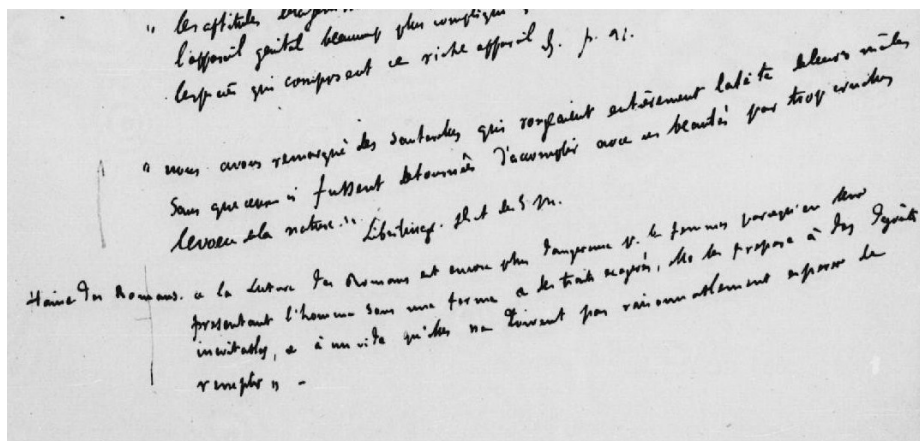 " les aptitudes
l'appareil génital beaucoup plus compliqué,
les qui composent ce riche appareil p. 92.
" nous avons remarqué des sauterelles qui rongeaient entièrement la tête de leurs mâles
sans que ceux-ci fussent détournés d'accomplir avec ces beautés par trop cruelles
le vœu de la nature ".
Haine des Romans. " la lecture des Romans est encore plus dangereuse p. les femmes parce qu'en leur
présentant l'homme sous une forme & des traits exagérés, elle les prépare à des dégoûts
inévitables, & à un vide qu'elles ne doivent pas raisonnablement espérer de
remplir " –